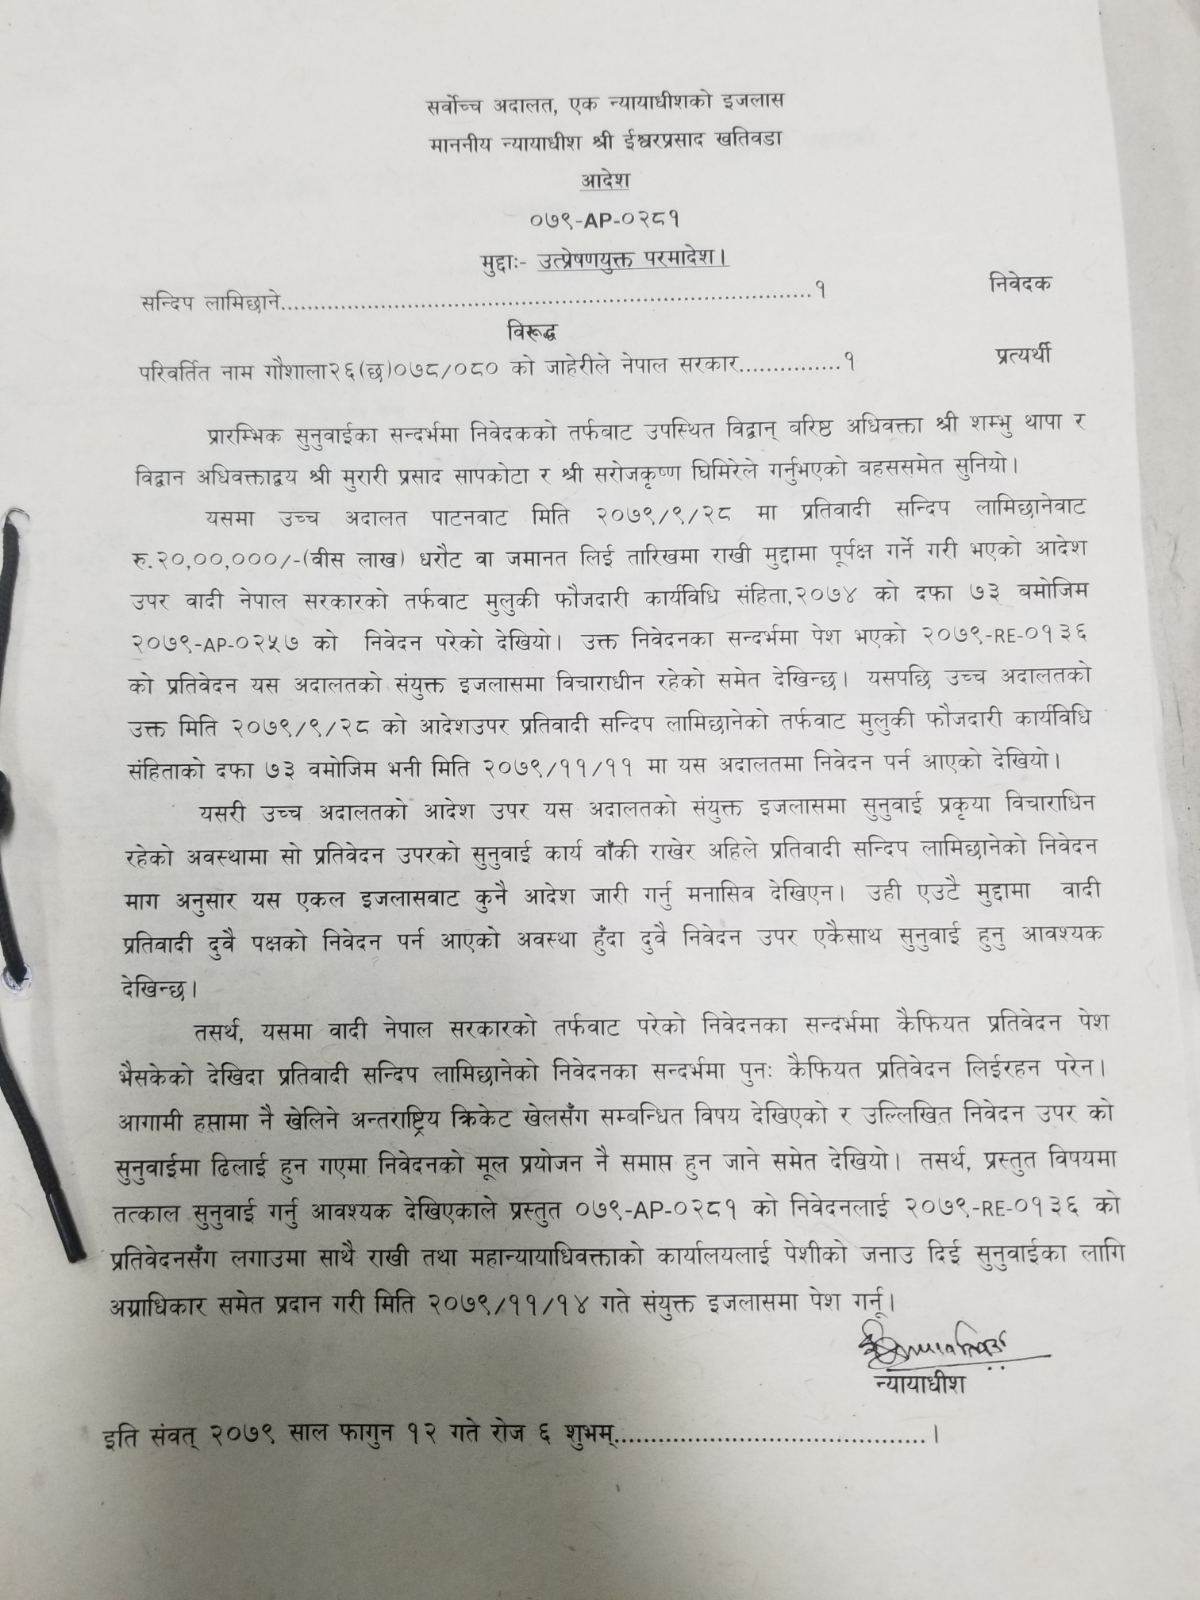 सर्वोच्च अदालत, एक न्यायाधीशको इजलास
माननीय न्यायाधीश श्री ईश्वरप्रसाद खतिवडा
आदेश
०७९-AP-०२८१
मुद्दाः- उत्प्रेषणयुक्त परमादेश।
सन्दिप लामिछाने................................................................................१ निवेदक
विरूद्ध
परिवर्तित नाम गौशाला२६(छ)०७८/०८० को जाहेरीले नेपाल सरकार...............१ प्रत्यर्थी
प्रारम्भिक सुनुवाईका सन्दर्भमा निवेदकको तर्फवाट उपस्थित विद्वान् बरिष्ठ अधिवक्ता श्री शम्भु थापा र
विद्वान अधिवक्ताद्वय श्री मुरारी प्रसाद सापकोटा र श्री सरोजकृष्ण घिमिरेले गर्नुभएको वहससमेत सुनियो।
यसमा उच्च अदालत पाटनवाट मिति २०७९/९/२८ मा प्रतिवादी सन्दिप लामिछानेवाट
रु.२०,००,०००/-(वीस लाख) धरौट वा जमानत लिई तारिखमा राखी मुद्दामा पूर्पक्ष गर्ने गरी भएको आदेश
उपर वादी नेपाल सरकारको तर्फवाट मुलुकी फौजदारी कार्यविधि संहिता,२०७४ को दफा ७३ बमोजिम
२०७९-AP-०२५७ को निवेदन परेको देखियो। उक्त निवेदनका सन्दर्भमा पेश भएको २०७९-RE-०१३६
को प्रतिवेदन यस अदालतको संयुक्त इजलासमा विचाराधीन रहेको समेत देखिन्छ। यसपछि उच्च अदालतको
उक्त मिति २०७९/९/२८ को आदेशउपर प्रतिवादी सन्दिप लामिछानेको तर्फवाट मुलुकी फौजदारी कार्यविधि
संहिताको दफा ७३ वमोजिम भनी मिति २०७९/११/११ मा यस अदालतमा निवेदन पर्न आएको देखियो।
यसरी उच्च अदालतको आदेश उपर यस अदालतको संयुक्त इजलासमा सुनुवाई प्रकृया विचाराधिन
रहेको अवस्थामा सो प्रतिवेदन उपरको सुनुवाई कार्य वाँकी राखेर अहिले प्रतिवादी सन्दिप लामिछानेको निवेदन
माग अनुसार यस एकल इजलासवाट कुनै आदेश जारी गर्नु मनासिव देखिएन। उही एउटै मुद्दामा वादी
प्रतिवादी दुवै पक्षको निवेदन पर्न आएको अवस्था हुँदा दुवै निवेदन उपर एकैसाथ सुनुवाई हुनु आवश्यक
देखिन्छ।
तसर्थ, यसमा वादी नेपाल सरकारको तर्फवाट परेको निवेदनका सन्दर्भमा कैफियत प्रतिवेदन पेश
भैसकेको देखिदा प्रतिवादी सन्दिप लामिछानेको निवेदनका सन्दर्भमा पुनः कैफियत प्रतिवेदन लिईरहन परेन।
आगामी हप्तामा नै खेलिने अन्तराष्ट्रिय क्रिकेट खेलसँग सम्बन्धित विषय देखिएको र उल्लिखित निवेदन उपर को
सुनुवाईमा ढिलाई हुन गएमा निवेदनको मूल प्रयोजन नै समाप्त हुन जाने समेत देखियो। तसर्थ, प्रस्तुत विषयमा
तत्काल सुनुवाई गर्नु आवश्यक देखिएकाले प्रस्तुत ०७९-AP-०२८१ को निवेदनलाई २०७९-RE-०१३६ को
प्रतिवेदनसँग लगाउमा साथै राखी तथा महान्यायाधिवक्ताको कार्यालयलाई पेशीको जनाउ दिई सुनुवाईका लागि
अग्राधिकार समेत प्रदान गरी मिति २०७९/११/१४ गते संयुक्त इजलासमा पेश गर्नू।
न्यायाधीश
इति संवत् २०७९ साल फागुन १२ गते रोज ६ शुभम्...........................................।